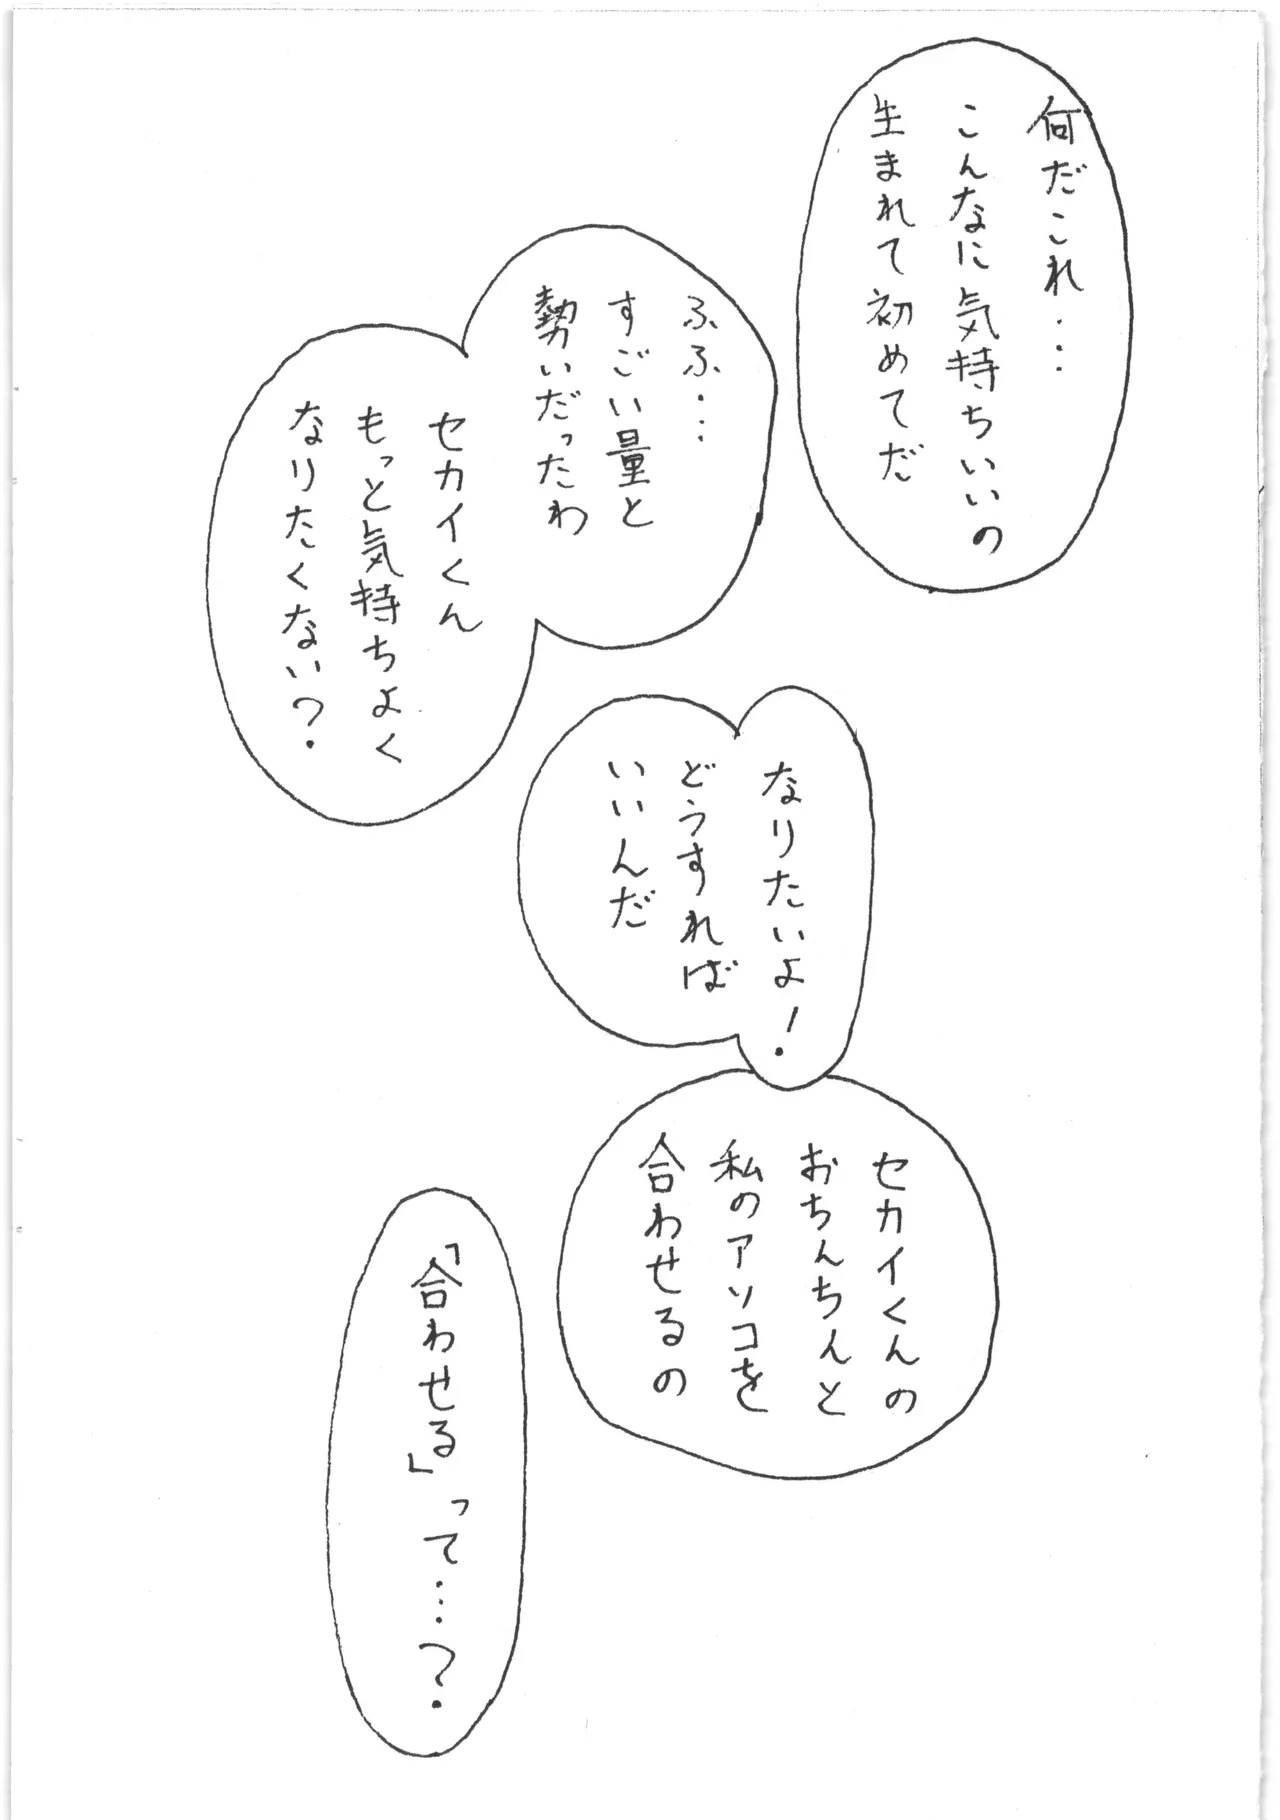 何だこれ…
こんなに気持ちいいの
生まれて初めてだ
ふふ…
すごい量と
勢いだったわ
セカイくん
もっと気持ちよく
なりたくない?
なりたいよ!
どうすれば
いいんだ
セカイくんの
おちんちんと
私のアソコを
合わせるの
「合わせる」って…?